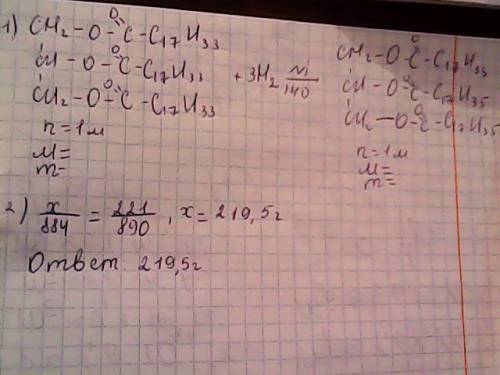 1) CH₂ - O - C(=O) - C₁₇H₃₃
CH - O - C(=O) - C₁₇H₃₃ + 3H₂ Ni/140
CH₂ - O - C(=O) - C₁₇H₃₃
n = 1м
M =
m =
CH₂ - O - C(=O) - C₁₇H₃₅
CH - O - C(=O) - C₁₇H₃₅
CH₂ - O - C(=O) - C₁₇H₃₅
n = 1м
M =
m =
2) x/884 = 221/890, x = 219,5г
Ответ. 219,5г